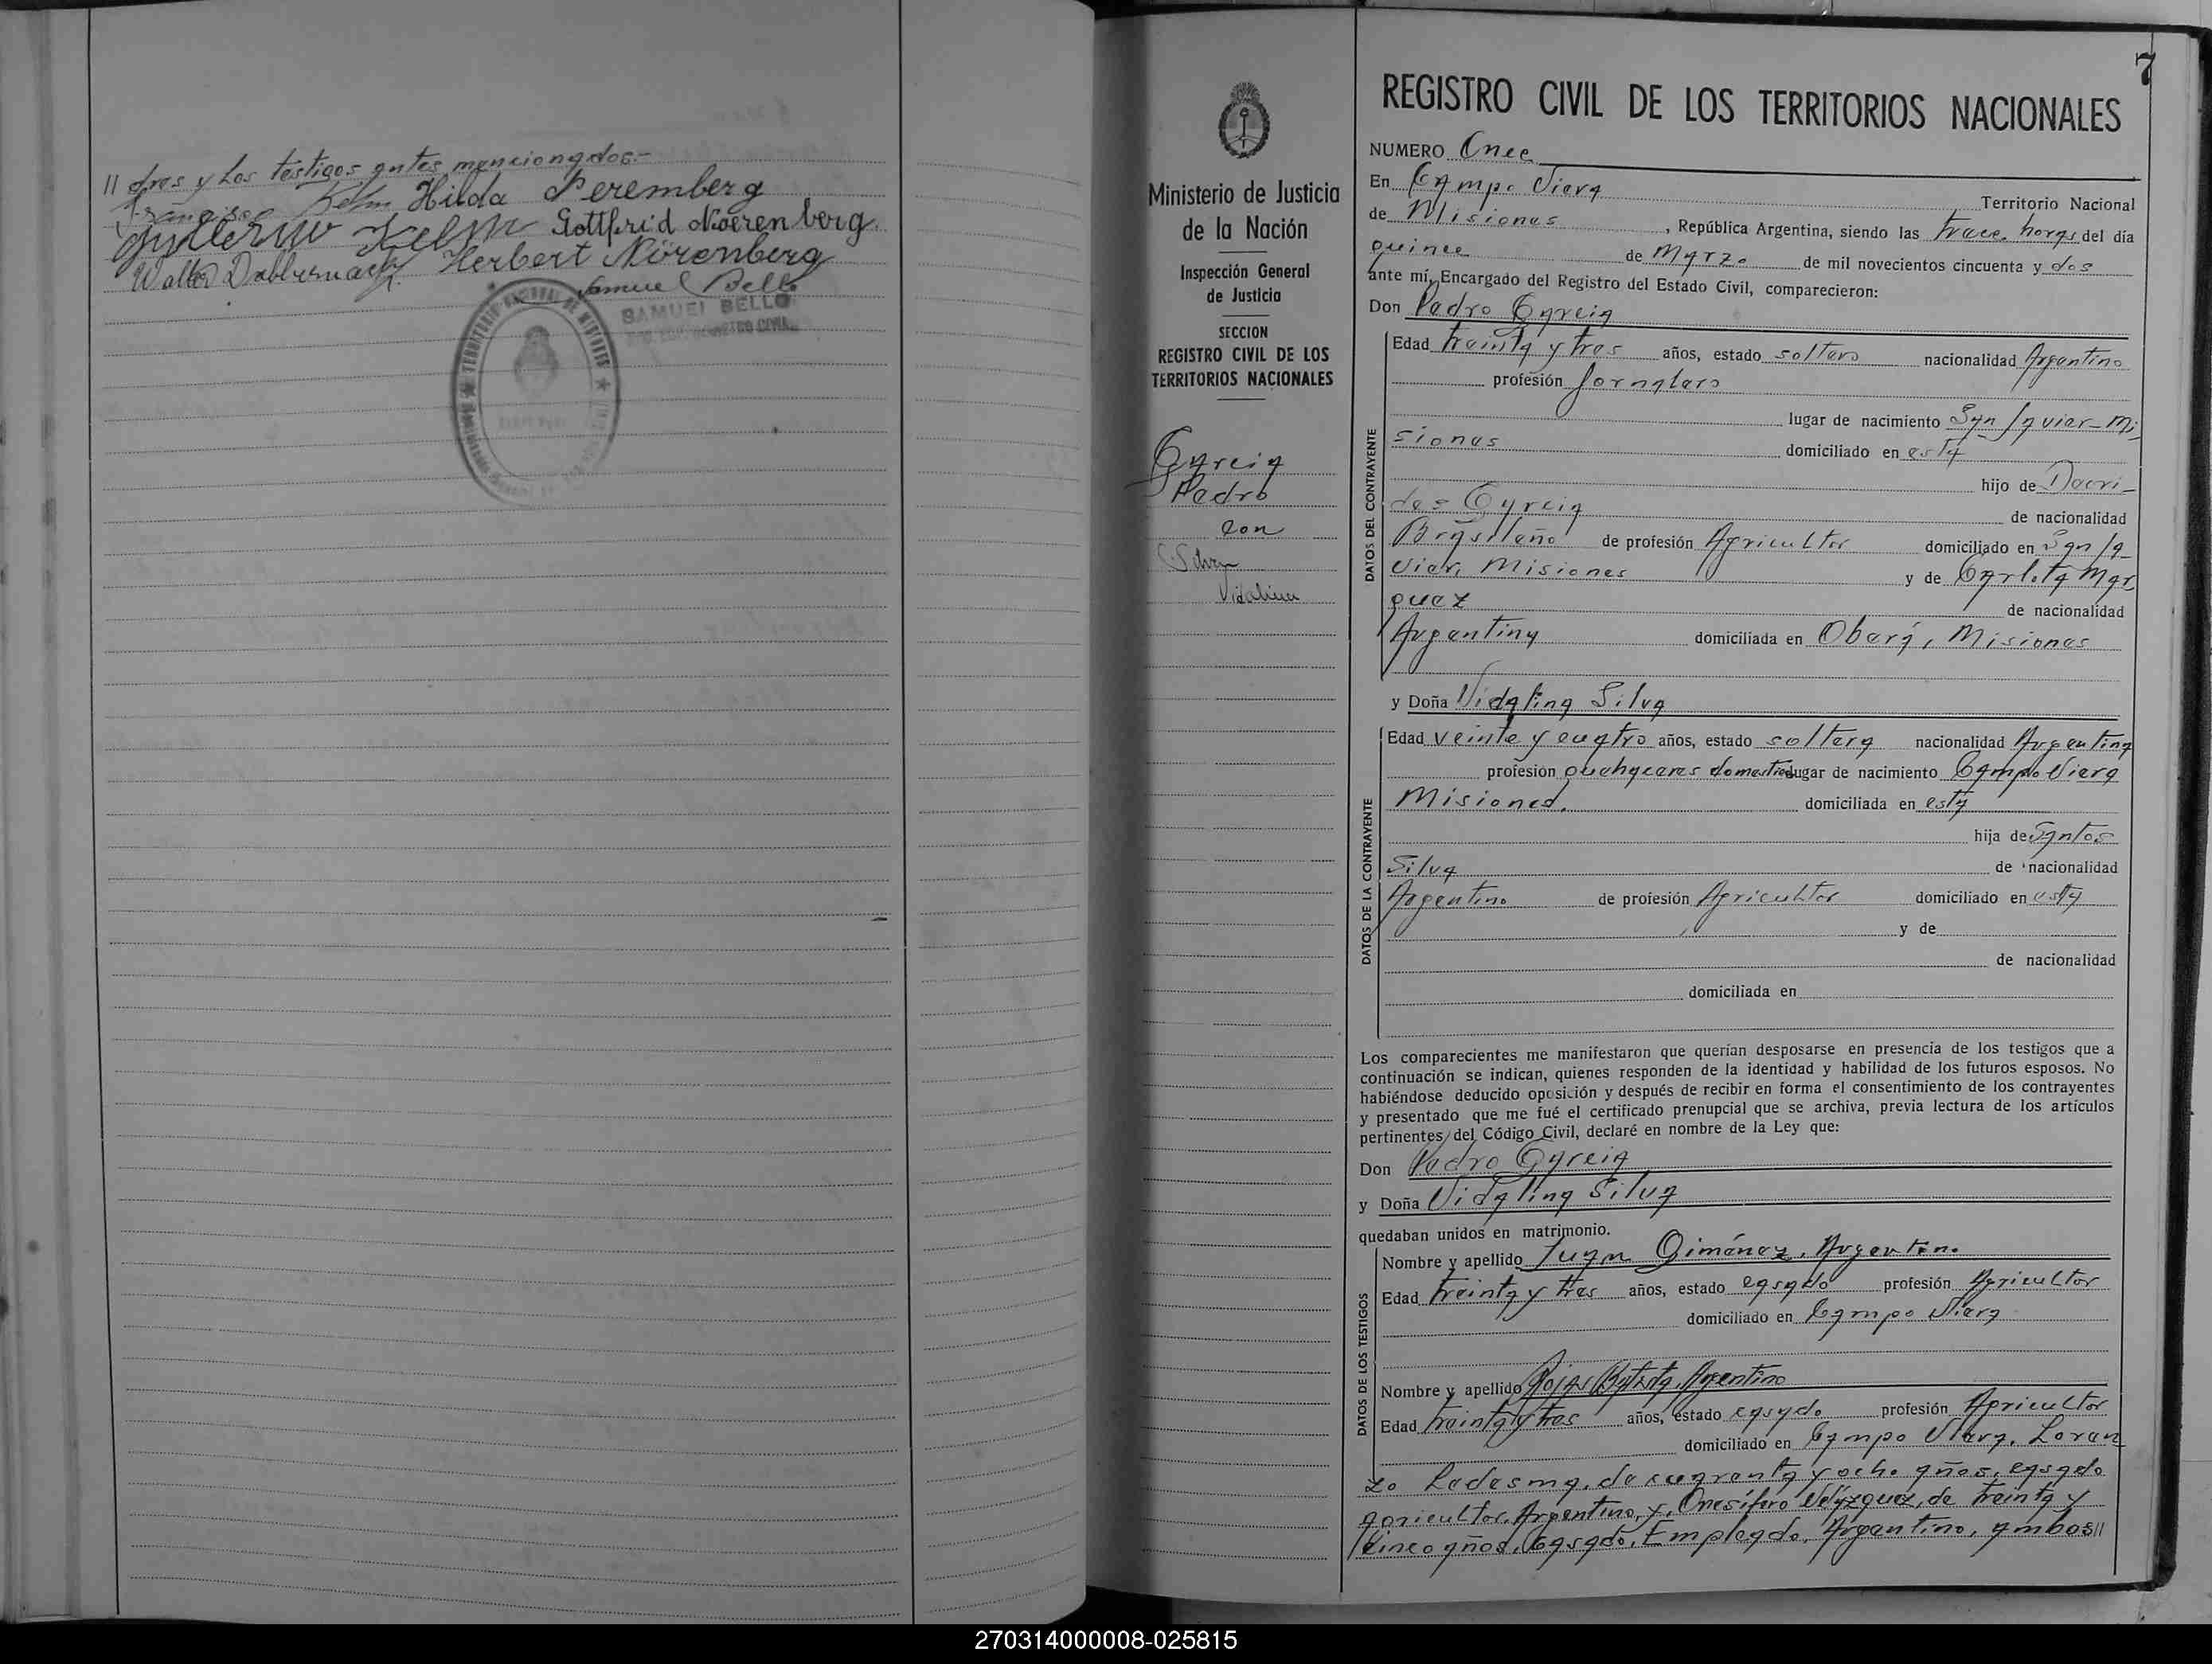 // dres y los testigos antes mencionados.-
Francisco Kelm Hilda Peremberg
Guillermo Kelm Gottfrid Noerenberg.
Walter Dabbernack. Herbert Nörenberg
Samuel Bello
SAMUEL BELLO
7
REGISTRO CIVIL DE LOS TERRITORIOS NACIONALES
Ministerio de Justicia
de la Nación
Inspección General
de Justicia
SECCION
REGISTRO CIVIL DE LOS
TERRITORIOS NACIONALES
Garcia
Pedro
con
Silva
Vidalina
NUMERO Once
En Campo Viera Territorio Nacional
de Misiones, República Argentina, siendo las trece horas del día
quince de Marzo de mil novecientos cincuenta y dos
ante mí, Encargado del Registro del Estado Civil, comparecieron:
Don Pedro Garcia
DATOS DEL CONTRAYENTE
Edad treinta y tres años, estado soltero nacionalidad Argentino
profesión Jornalero
lugar de nacimiento San Javier-Mi
siones domiciliado en esta
hijo de Docri-
des Garcia de nacionalidad
Brasileño de profesión Agricultor domiciliado en San Ja
vier, Misiones y de Carlota Mar
quez de nacionalidad
Argentina domiciliada en Oberá, Misiones
y Doña Vidalina Silva
DATOS DE LA CONTRAYENTE
Edad veinte y cuatro años, estado soltera nacionalidad Argentina
profesión quehaceres domestico lugar de nacimiento Campo Viera
Misiones. domiciliada en esta
hija de Santos
Silva de nacionalidad
Argentino de profesión Agricultor domiciliado en esta
y de
de nacionalidad
domiciliada en
Los comparecientes me manifestaron que querían desposarse en presencia de los testigos que a
continuación se indican, quienes responden de la identidad y habilidad de los futuros esposos. No
habiéndose deducido oposición y después de recibir en forma el consentimiento de los contrayentes
y presentado que me fué el certificado prenupcial que se archiva, previa lectura de los artículos
pertinentes del Código Civil, declaré en nombre de la Ley que:
Don Pedro Garcia
y Doña Vidalina Silva
quedaban unidos en matrimonio.
DATOS DE LOS TESTIGOS
Nombre y apellido Juan Giménez, Argentino
Edad treinta y tres años, estado casado profesión Agricultor
domiciliado en Campo Viera
Nombre y apellido Rojas Batista, Argentino
Edad treinta y tres años, estado casado profesión Agricultor
domiciliado en Campo Viera, Loren
zo Ledesma, de cuarenta y ocho años, casado
agricultor, Argentino, y, Onesífero Velázquez, de treinta y
cinco años, casado, Empleado, Argentino, ambos //
270314000008-025815